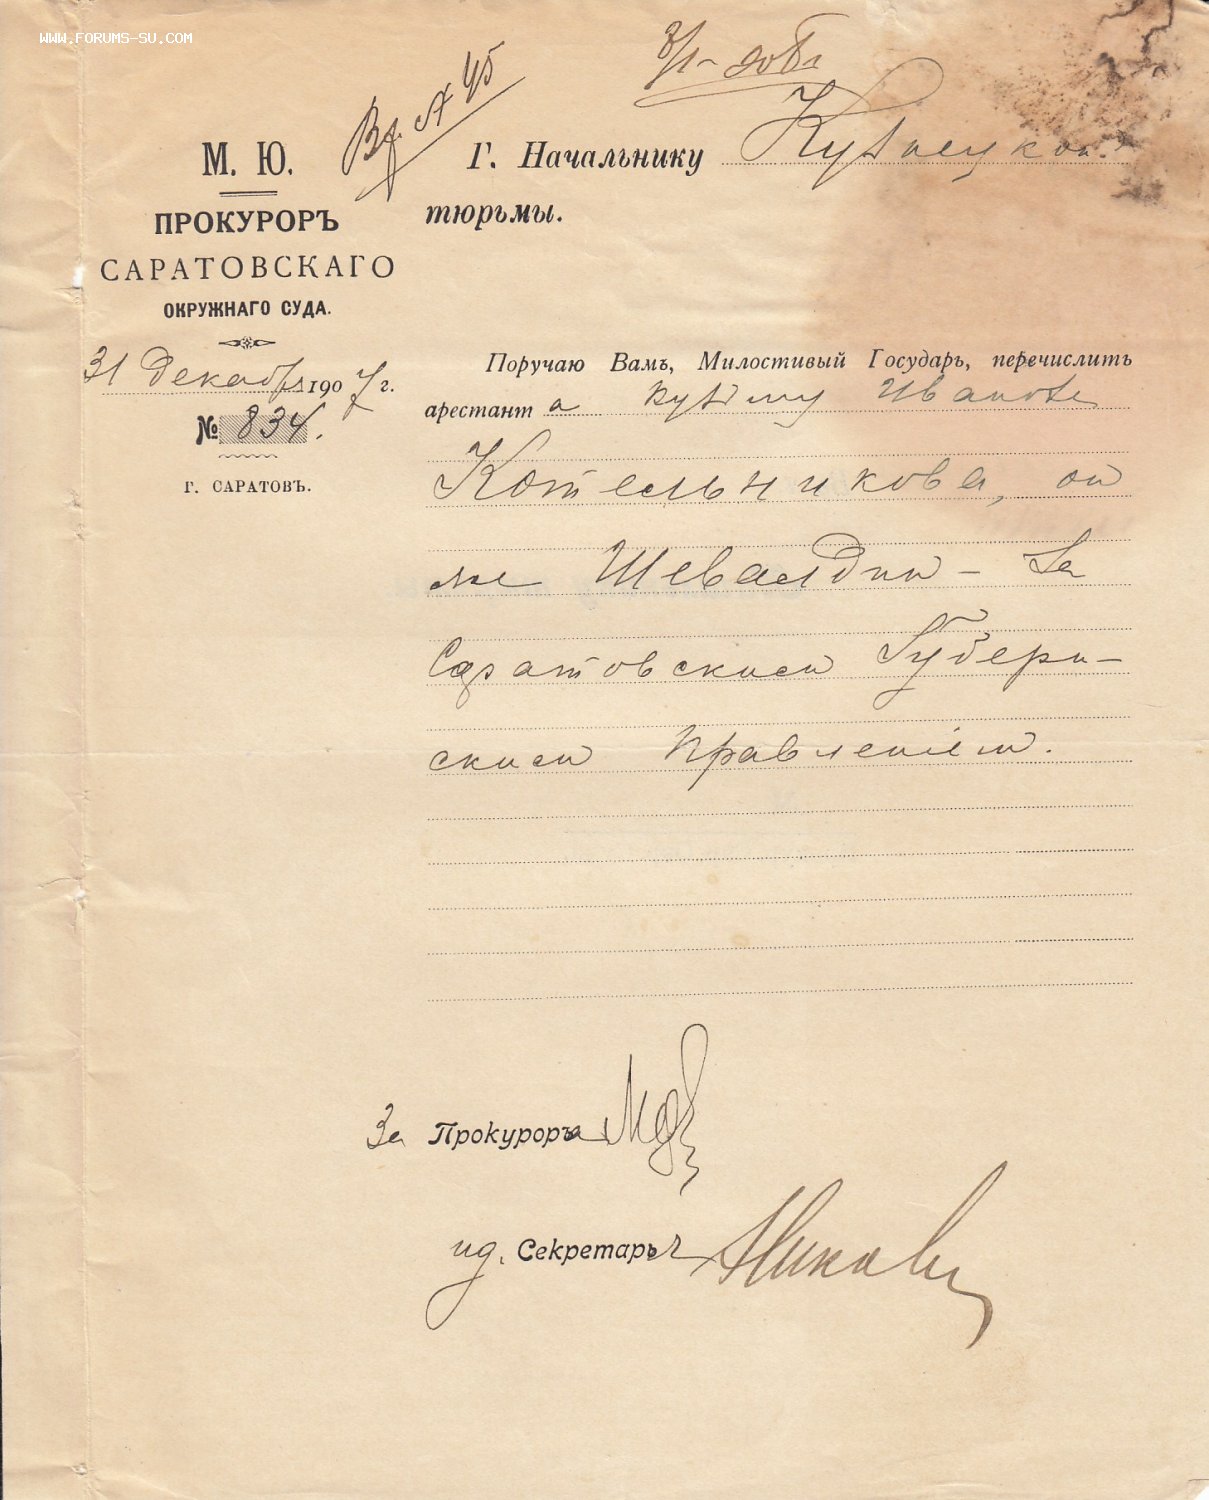 WWW.FORUMS-SU.COM
М. Ю.
ПРОКУРОРЪ
САРАТОВСКАГО
ОКРУЖНАГО СУДА.
31 Декабря 1907 г.
№ 834.
Г. САРАТОВЪ.
Г. Начальнику Кузнецкой
тюрьмы.
Поручаю Вамъ, Милостивый Государь, перечислить
арестанта Кузьму Иванова
Котельникова, он
же Шевалдин – За
Саратовским Губерн–
ским Правленіем.
За Прокурора
ид. Секретарь